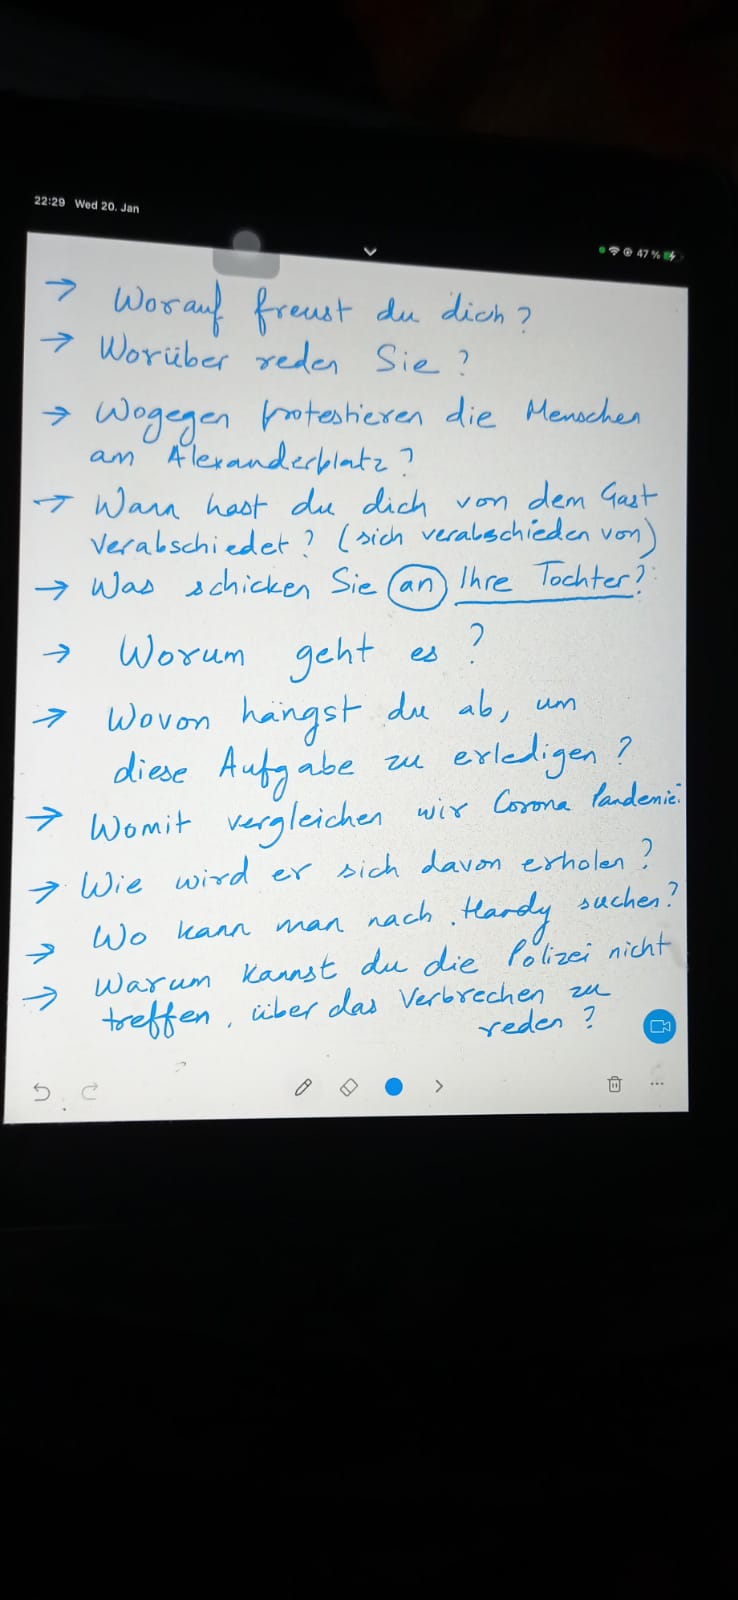 22:29 Wed 20. Jan
47 %
→ Worauf freust du dich?
→ Worüber reden Sie?
→ Wogegen protestieren die Menschen
am Alexanderplatz?
→ Wann hast du dich von dem Gast
verabschiedet? (sich verabschieden von)
→ Was schicken Sie an Ihre Tochter?
→ Worum geht es?
→ Wovon hängst du ab, um
diese Aufgabe zu erledigen?
→ Womit vergleichen wir Corona Pandemie?
→ Wie wird er sich davon erholen?
→ Wo kann man nach Hardy suchen?
→ Warum kannst du die Polizei nicht
treffen, über das Verbrechen zu
reden?